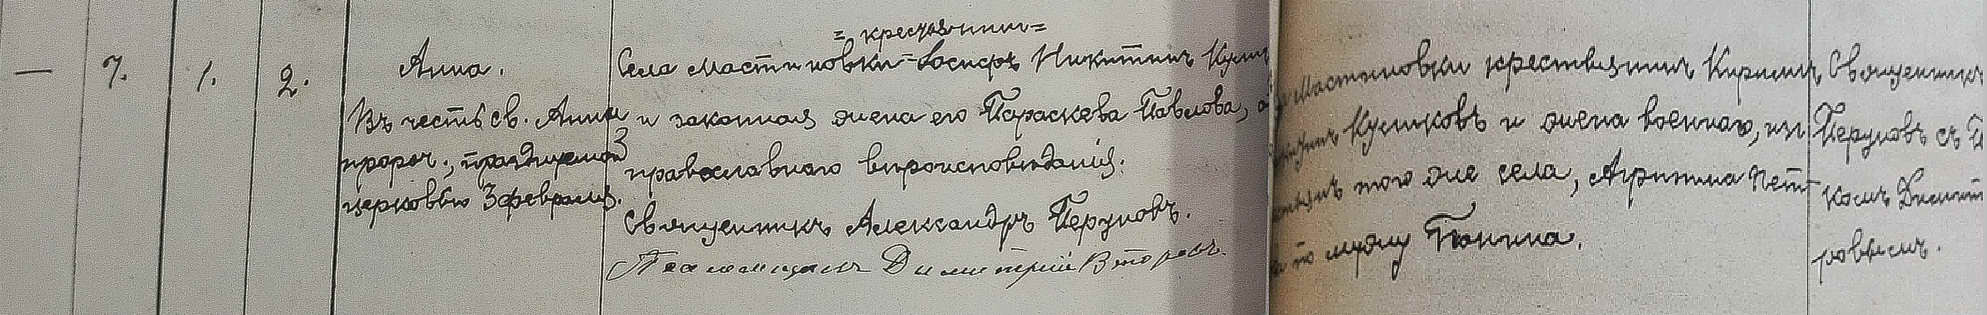 — 7. 1. 2. Анна.
Въ честь св. Анны
пророч., празднуемой
церковью 3 февраля.
= крестьянинъ =
Села Мастиновки Іосифъ Никитинъ
и законная жена его Параскева Павлова,
православнаго вѣроисповѣданія.
Священникъ Александръ Перуновъ.
Псаломщикъ Димитрій Второвъ.
Мастиновки крестьянинъ Кирилъ
Куликовъ и жена военнаго, из
того же села, Агрипина Пет
по мужу Панина.
Священникъ
Перуновъ съ П
комъ Димит
ровымъ.